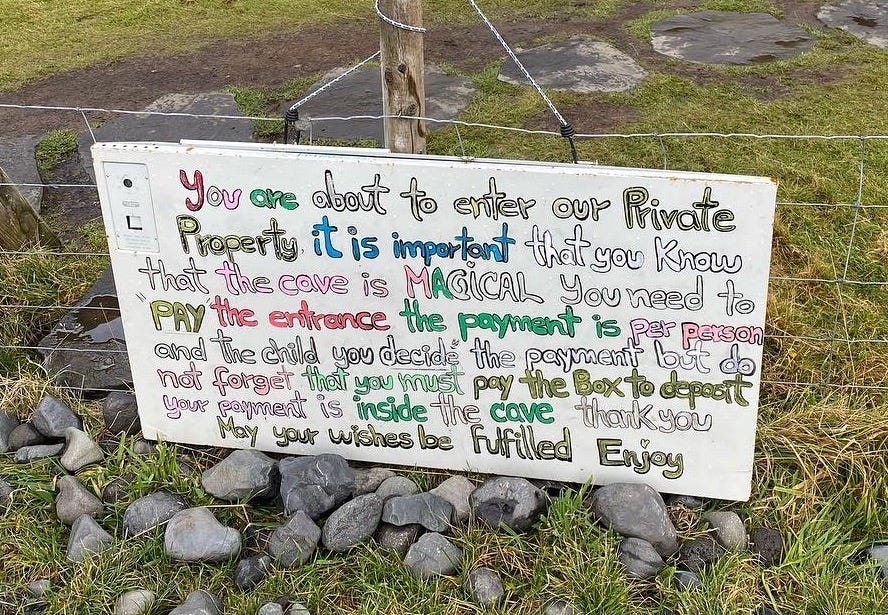 You are about to enter our Private
Property, it is important that you Know
that the cave is MAGICAL You need to
"PAY" the entrance the payment is per person
and the child you decide" the payment but do
not forget that you must pay the Box to deposit
your payment is inside the cave thank you
May your wishes be Fulfilled Enjoy